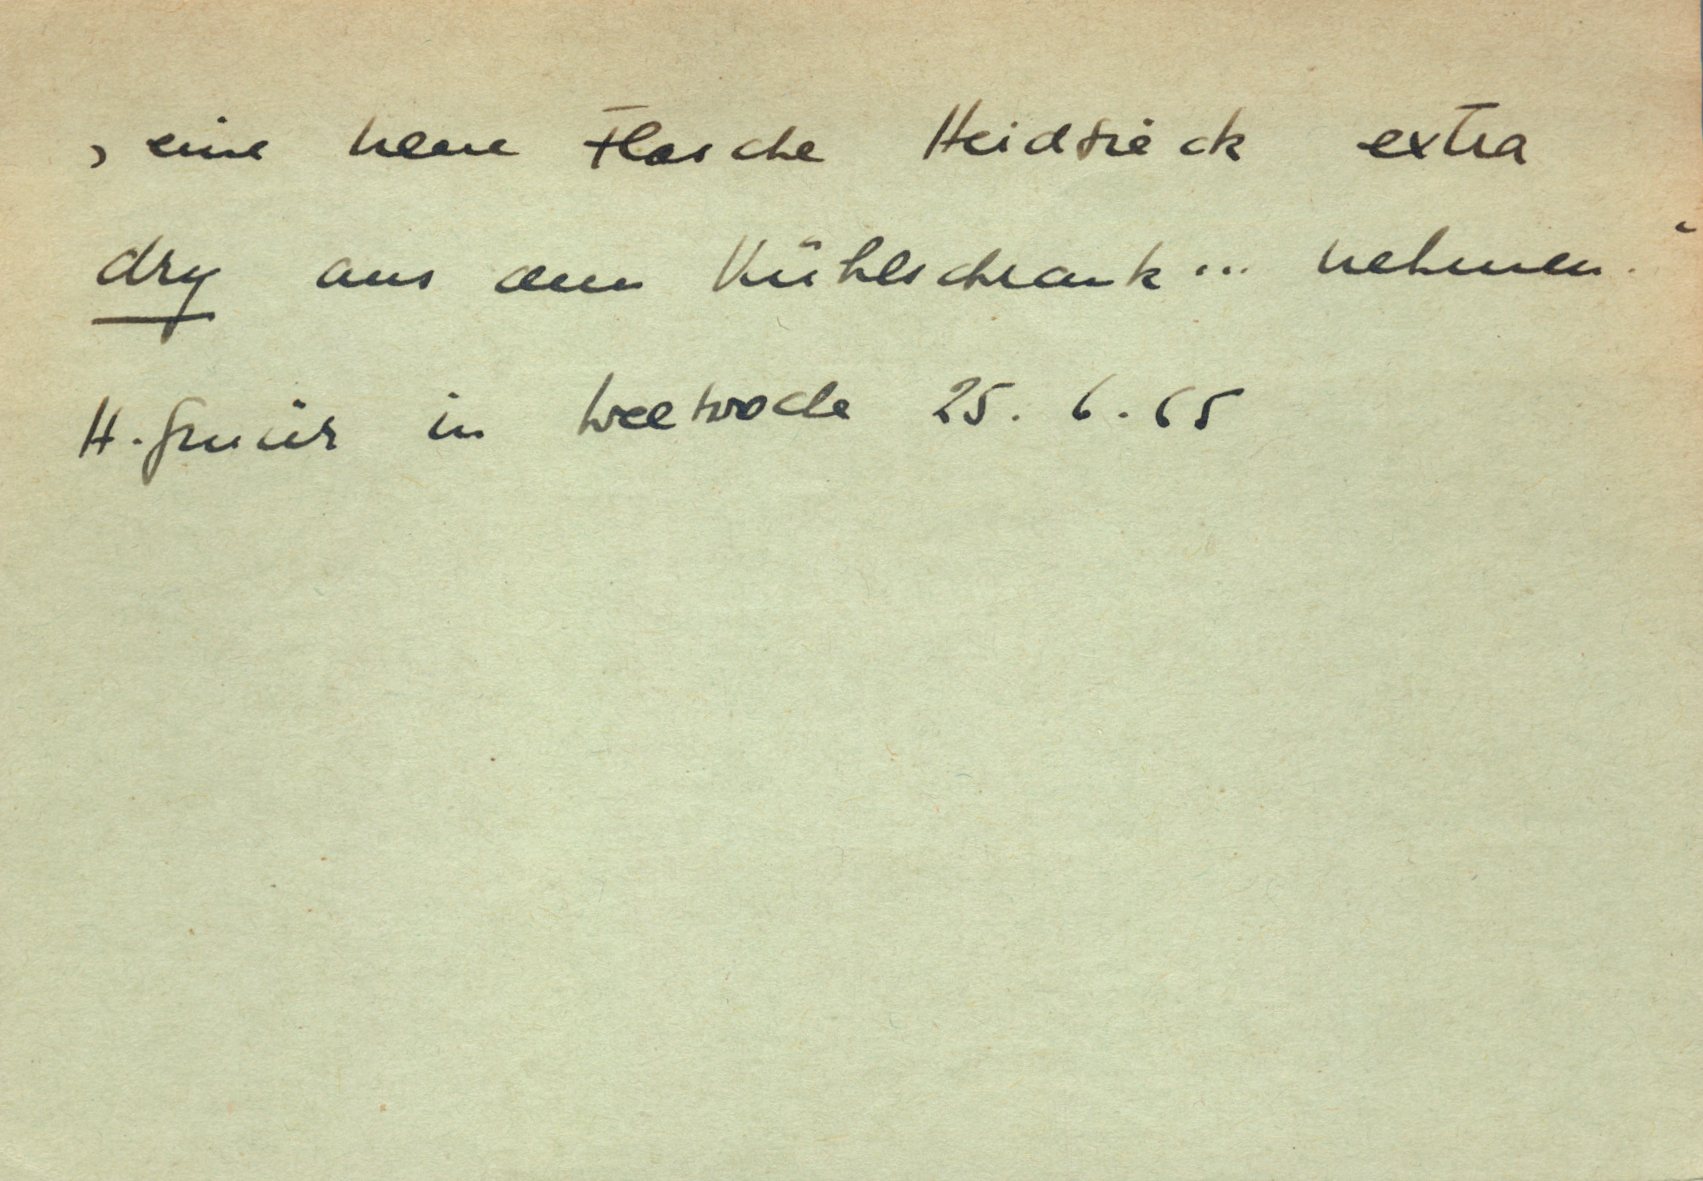 , eine neue Flasche Heidsieck extra
dry aus dem Kühlschrank ... nehmen."
H. Gmür in Weltwoche 25. 6. 65